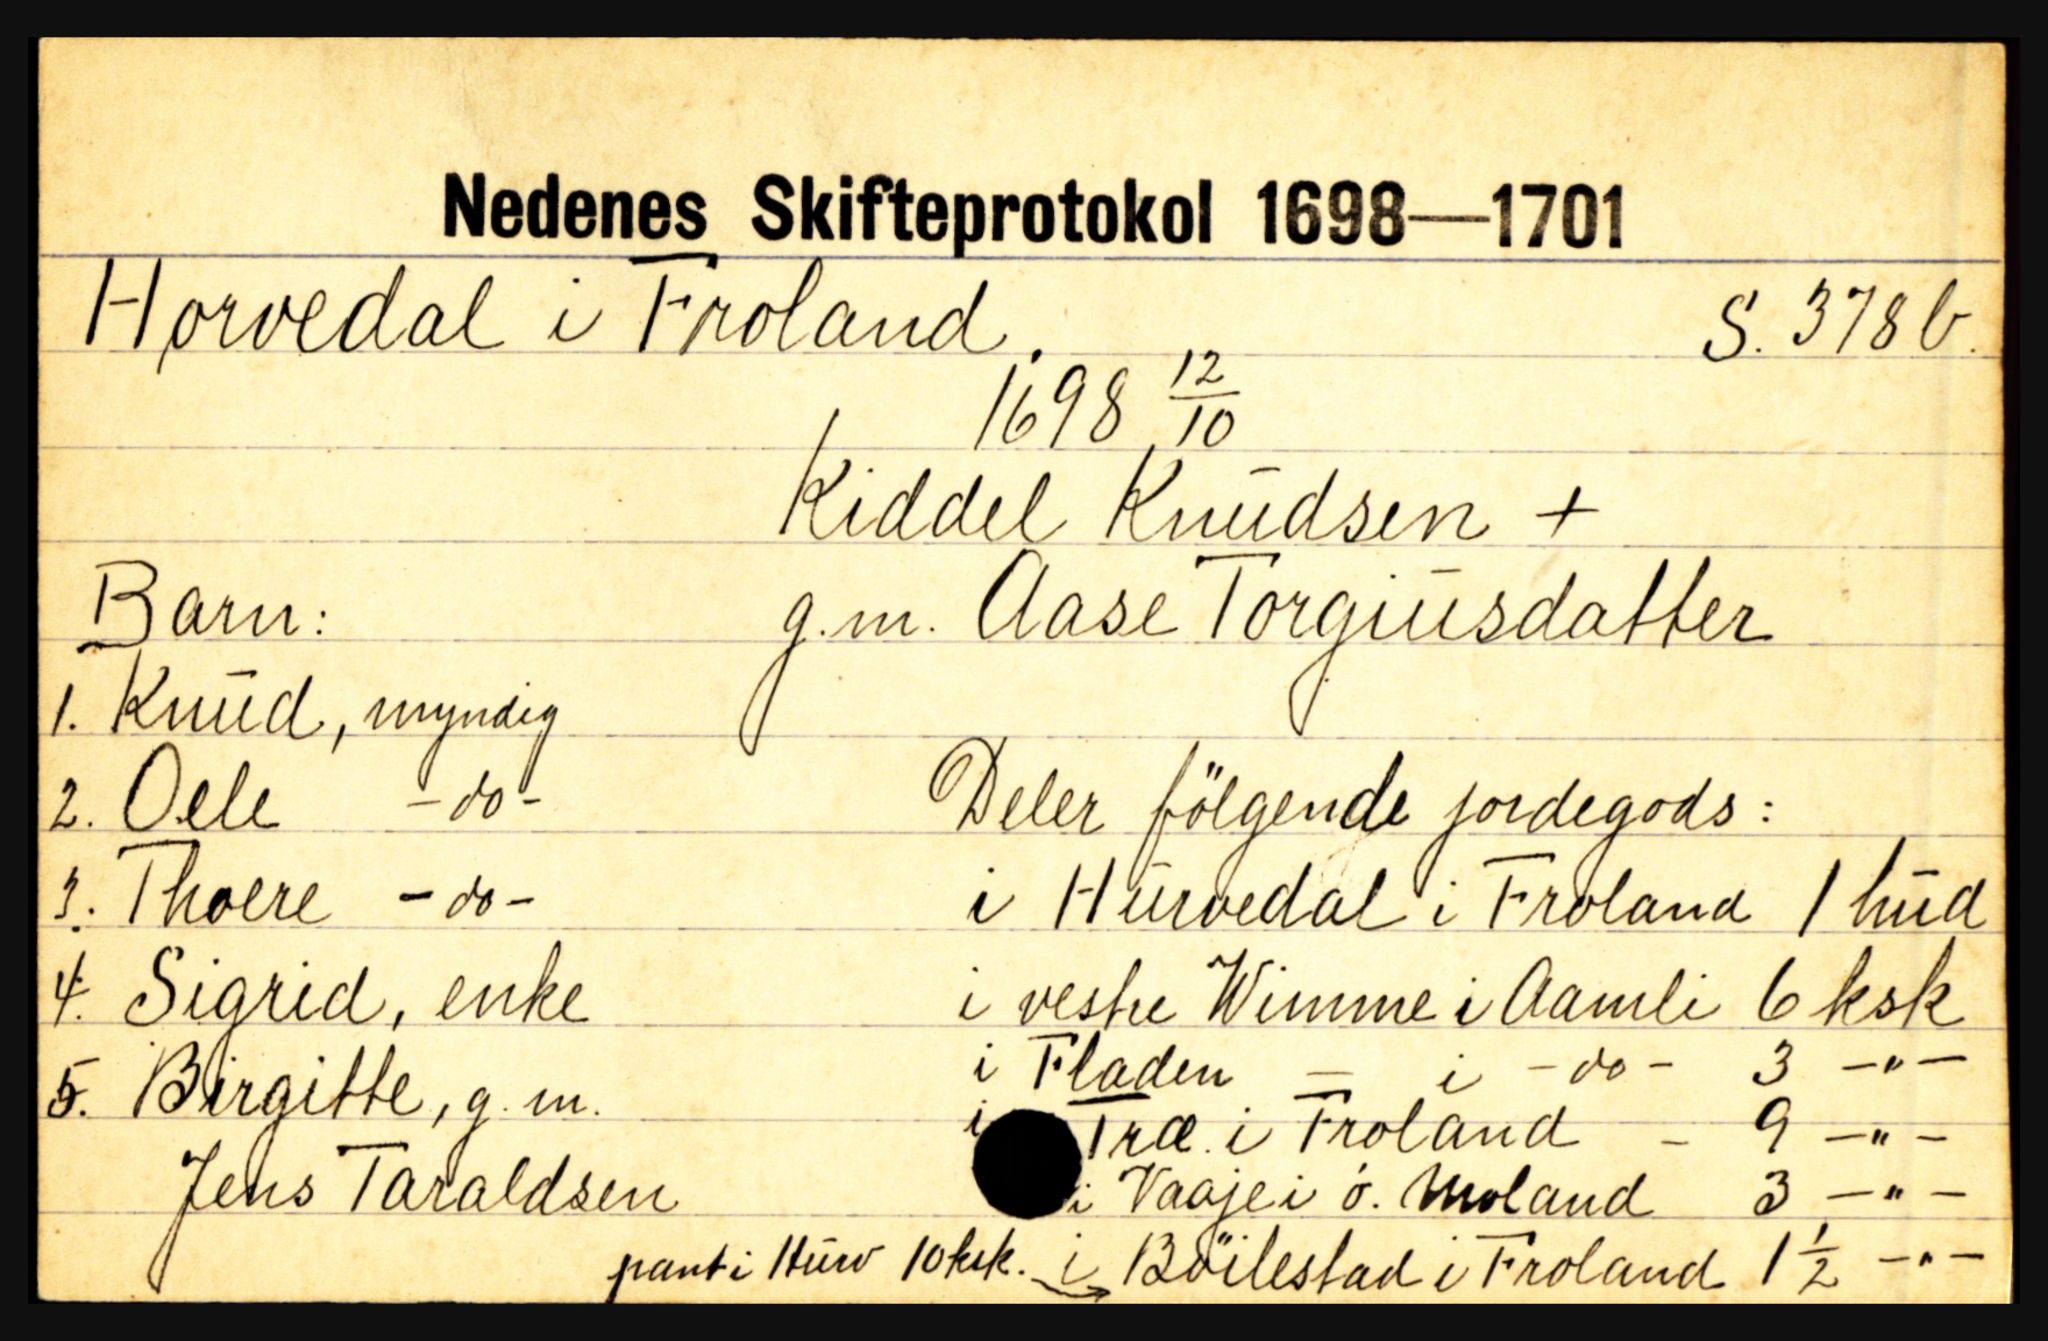 Nedenes Skifteprotokol 1698—1701
Horvedal i Froland. S. 378 b.
1698 12/10
Kiddel Knudsen +
g.m. Aase Torgiusdatter
Barn:
1. Knud, myndig
2. Oele -do-
3. Thoere -do-
4. Sigrid, enke
5. Birgitte, g.m.
Jens Taraldsen
Deler fölgende jordegods:
i Hurvedal i Froland 1 hud
i vestre Wimme i Aamli 6 ksk
i Fladen — i -do- 3 —"—
i Træ. i Froland — 9 —"—
i Vaaje i ö. Moland 3 —"—
i Böilestad i Froland 1 1/2 —"—
pant i Hurv 10 ksk.